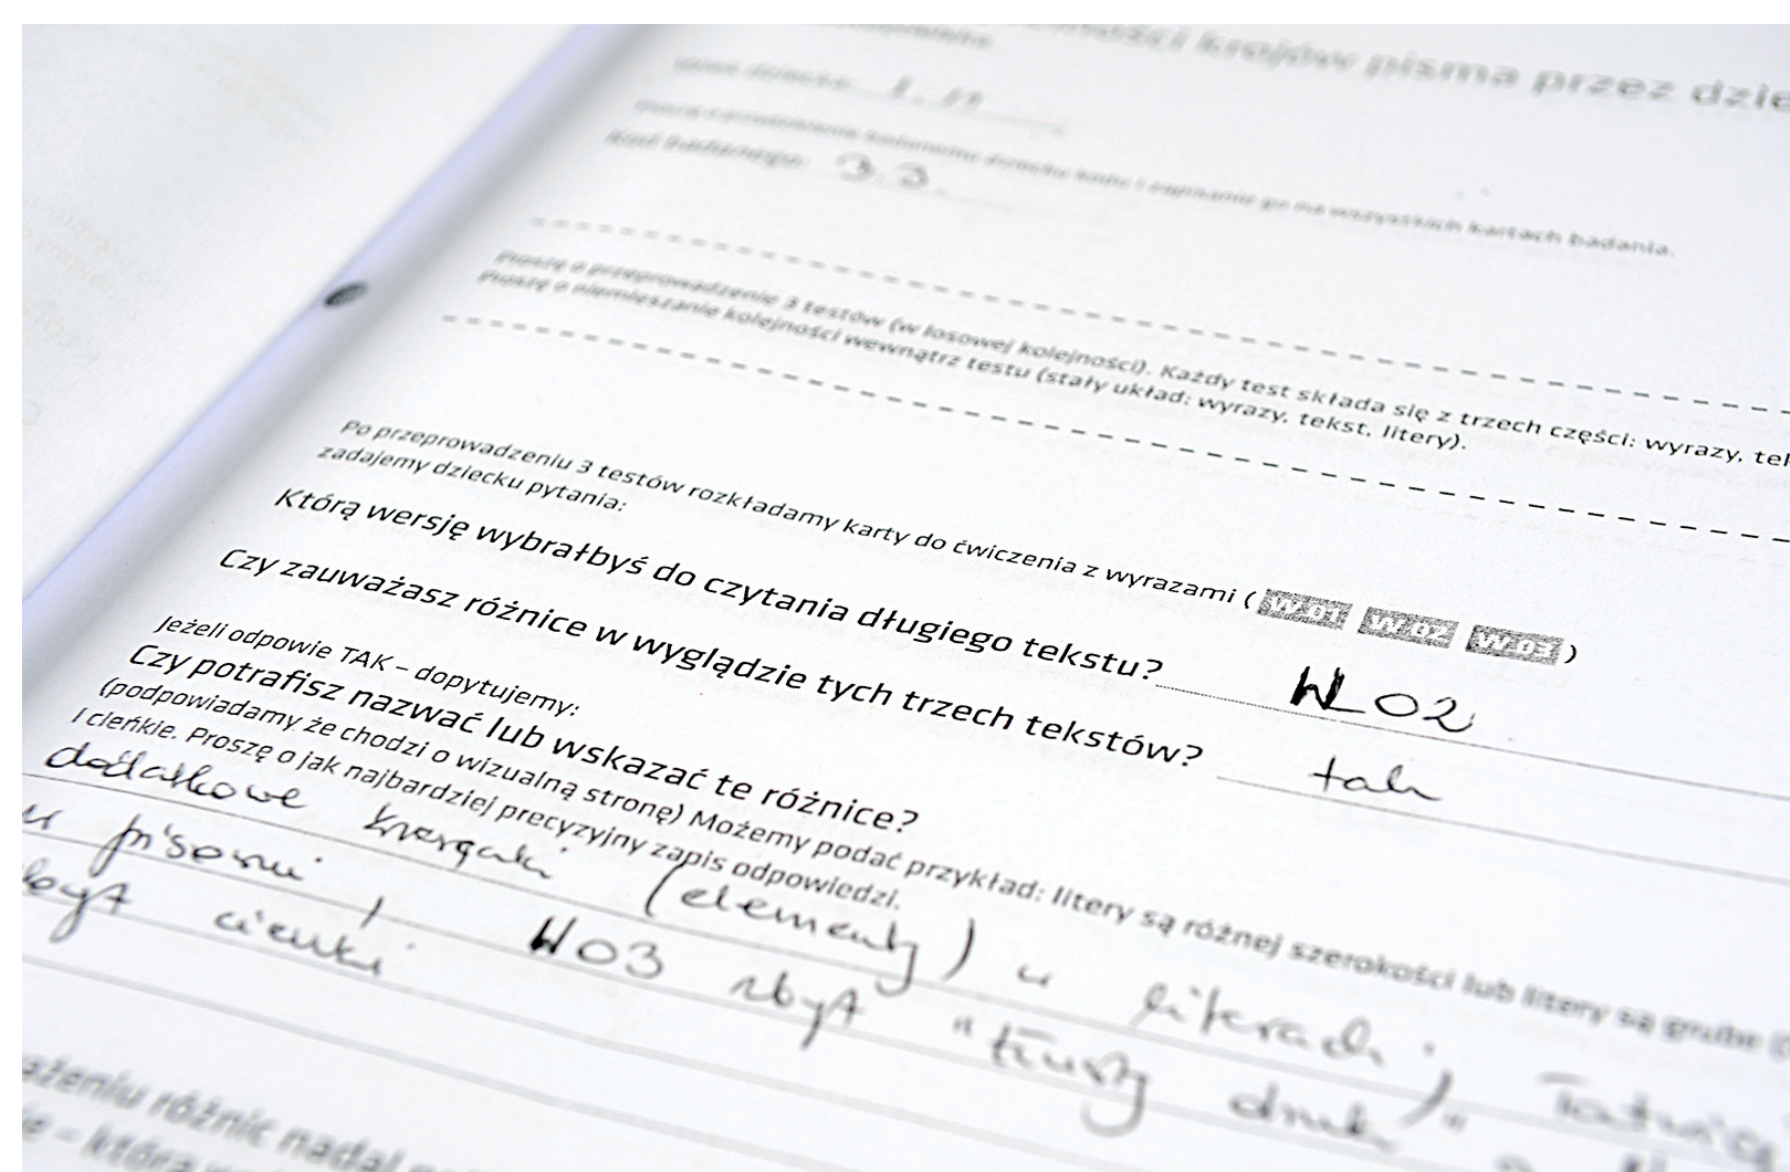 krojów pisma przez dzie
wiek dziecka: 1.11
kodu i zapisanie go na wszystkich kartach badania.
Kod badanego: 3.3.
Proszę o przeprowadzenie 3 testów (w losowej kolejności). Każdy test składa się z trzech części: wyrazy, tek
Proszę o niemieszanie kolejności wewnątrz testu (stały układ: wyrazy, tekst, litery).
Po przeprowadzeniu 3 testów rozkładamy karty do ćwiczenia z wyrazami ( W.01 W.02 W.03 )
zadajemy dziecku pytania:
Którą wersję wybrałbyś do czytania długiego tekstu? W 02
Czy zauważasz różnice w wyglądzie tych trzech tekstów? tak
Jeżeli odpowie TAK – dopytujemy:
Czy potrafisz nazwać lub wskazać te różnice?
(podpowiadamy że chodzi o wizualną stronę) Możemy podać przykład: litery są różnej szerokości lub litery są grube
i cieńkie. Proszę o jak najbardziej precyzyjny zapis odpowiedzi.
dodatkowe (elementy) w literach,
W03 zbyt "tłusty druk"
zbyt cienki
ażeniu różnic nadal
ie – która